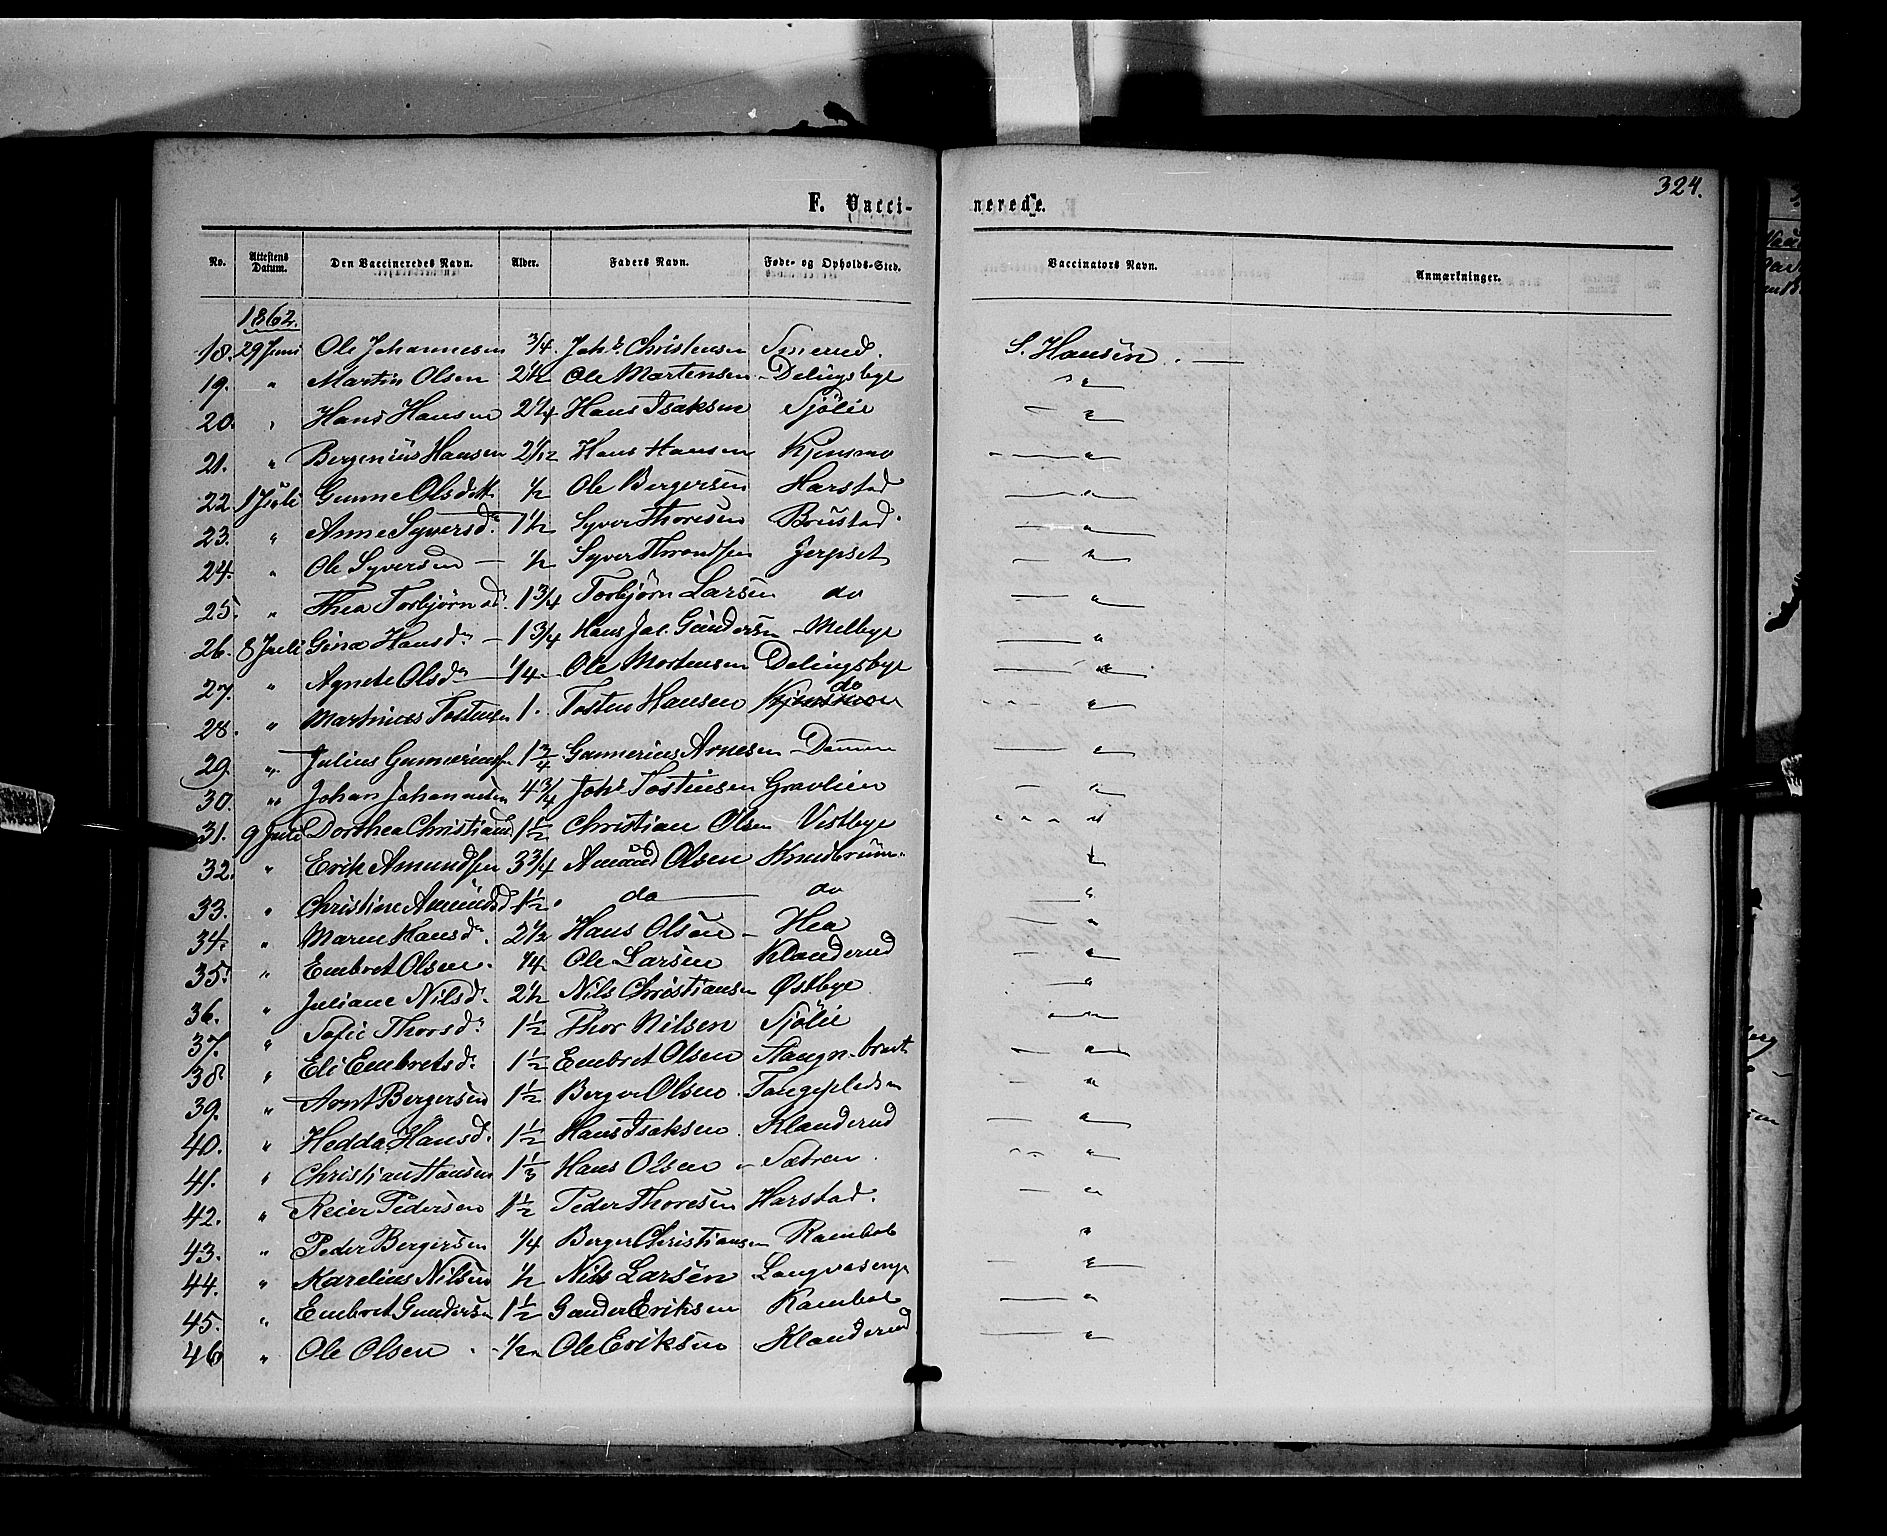 324.
F. Vaccinerede.
No. Attestens Datum. Den Vaccineredes Navn. Alder. Faders Navn. Føde- og Opholds-Sted. Vaccinators Navn. Anmærkninger.
1862.
18. 29 Juni Ole Johannesen 3/4. Johs. Christensen Smerud. S. Hansen. —
19. " Martin Olsen 2 1/2 Ole Martensen Delingsbye "
20. " Hans Hansen 2 1/4 Hans Isaksen Sjölie "
21. " Bergenius Hansen 2 1/12 Hans Hansen Kjensmo "
22. 1 Juli Gunne Olsdatt 1/2 Ole Bergersen Harstad "
23. " Anne Syversd. 1 1/2 Syver Thoresen Brustad. "
24. " Ole Syversen — 1/2 Syver Throndsen Jerpset "
25. " Thea Torbjörnsd. 1 3/4 Torbjörn Larsen do "
26. 8 Juli Gina Hansd. — 1 3/4 Hans Jac. Gundersen Melbye "
27. " Agnete Olsd. — 1/4 — Ole Mortensen Delingsbye "
28. " Martinus Tostensen 1. Tosten Hansen do "
29. " Julius Gunneriusen 1 3/4 Gunnerius Arnesen Dammen "
30. " Johan Johannesen 4 3/4 Johs. Tostensen Gravlien "
31. 9 Juli Dorthea Christiansd. 1 1/2 Christian Olsen Vestbye "
32. " Erik Amundsen 3 3/4 Amund Olsen Knudbrun. "
33. " Christine Amundsd. 1 1/2 do — do "
34. " Maren Hansd. 2 1/2 Hans Olsen — Hea "
35. " Embret Olsen. 1/4 Ole Larsen Klanderud "
36. " Juliane Nilsd. 2 1/2 Nils Christiansen Østbye "
37. " Sofie Thorsd. 1 1/2 Thor Nilsen Sjölie "
38 " Eli Embretsd. 1 1/2 Embret Olsen "
39. " Arnt Bergersen 1 1/2 Berger Olsen. Tangepladsen "
40. " Hedda Hansd. 1 1/2 Hans Isaksen. Klanderud "
41. " Christian Hansen 1 1/3 Hans Olsen — Sætren. "
42. " Reier Pedersen 1 1/2 Peder Thoresen Harstad. "
43. " Peder Bergersen 1/4 Berger Christiansen Rambøl "
44. " Karelius Nilsen 1/2 Nils Larsen Langvasenge "
45. " Embret Gundersen 1 1/2 Gunder Eriksen Rambøl "
46 " Ole Olsen. 1/2 Ole Eriksen Klanderud "